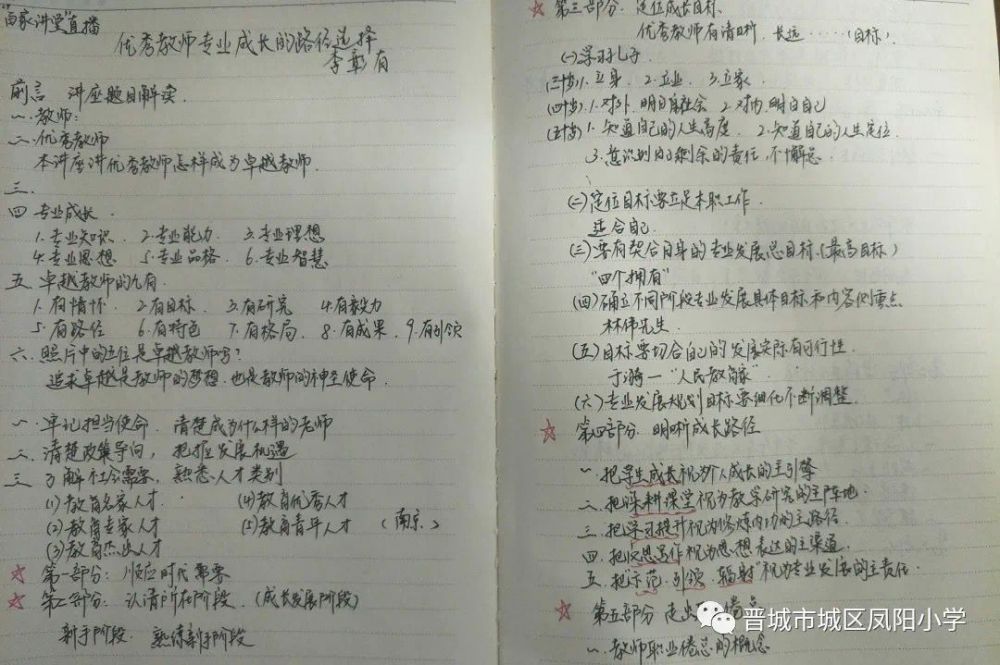 "百家讲堂"直播
优秀教师专业成长的路径选择
李彰有
前言 讲座题目解读.
一.教师:
二.优秀教师
本讲座讲优秀教师怎样成为卓越教师.
三.
四 专业成长.
1.专业知识. 2.专业能力. 3.专业理想
4.专业思想 5.专业品格. 6.专业智慧
五.卓越教师的九有.
1.有情怀. 2.有目标. 3.有研究 4.有毅力
5.有路径 6.有特色 7.有格局. 8.有成果. 9.有引领
六.照片中的五位是卓越教师吗?
追求卓越是教师的梦想.也是教师的神圣使命.
一.牢记担当使命. 清楚成为什么样的老师
二.清楚政策导向, 把握发展机遇
三.了解社会需要, 熟悉人才类别
(1)教育名家人才. (4)教育优秀人才
(2)教育专家人才 (5)教育青年人才 (南京)
(3)教育杰出人才
☆ 第一部分: 顺应时代需要
☆ 第二部分: 认清所在阶段. (成长发展阶段)
新手阶段. 熟练新手阶段
☆ 第三部分: 定位成长目标.
优秀教师有清晰. 长远……(目标)
(一)学习孔子.
(三十岁)1.立身 2.立业. 3.立家
(四十岁)1.对外.明白社会 2.对内.明白自己
(五十岁)1.知道自己的人生高度. 2.知道自己的人生定位.
3.意识到自己剩余的责任.不懈怠.
(二)定位目标要立足本职工作.
适合自己.
(三)要有契合自身的专业发展总目标(最高目标)
"四个拥有"
(四)确立不同阶段专业发展具体目标和内容侧重点
林伟先生.
(五)目标要切合自己的发展实际有可行性.
于漪一"人民教育家".
(六)专业发展规划目标要细化不断调整.
☆ 第四部分. 明晰成长路径
一.把学生成长视为个人成长的主引擎
二.把深耕课堂视为教学研究的主阵地.
三.把学习提升视为修炼内功的主路径.
四.把反思写作视为思想表达的主渠道.
五.把"示范.引领.辐射"视为专业发展的主责任.
☆ 第五部分 走出
一.教师职业倦怠的概念
晋城市城区凤阳小学